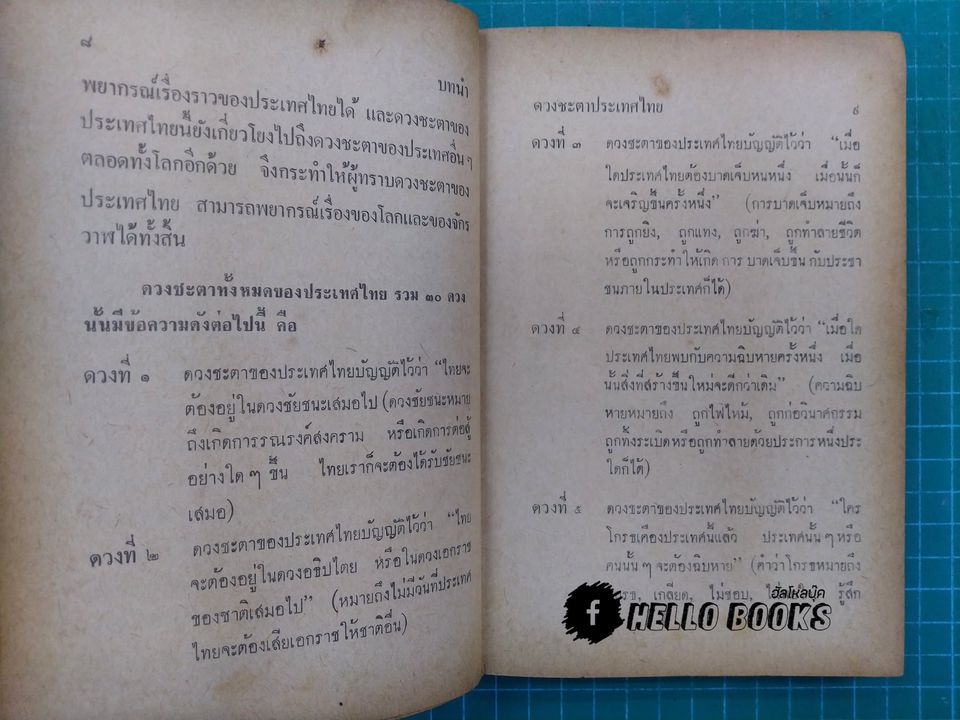 ๘
บทนำ
พยากรณ์เรื่องราวของประเทศไทยได้ และดวงชะตาของ
ประเทศไทยนี้ยังเกี่ยวโยงไปถึงดวงชะตาของประเทศอื่น ๆ
ตลอดทั้งโลกอีกด้วย จึงกระทำให้ผู้ทราบดวงชะตาของ
ประเทศไทย สามารถพยากรณ์เรื่องของโลกและของจักร
วาฬได้ทั้งสิ้น
ดวงชะตาทั้งหมดของประเทศไทย รวม ๓๐ ดวง
นั้นมีข้อความดังต่อไปนี้ คือ
ดวงที่ ๑ ดวงชะตาของประเทศไทยบัญญัติไว้ว่า “ไทยจะ
ต้องอยู่ในดวงชัยชนะเสมอไป (ดวงชัยชนะหมาย
ถึงเกิดการรณรงค์สงคราม หรือเกิดการต่อสู้
อย่างใด ๆ ขึ้น ไทยเราก็จะต้องได้รับชัยชนะ
เสมอ)
ดวงที่ ๒ ดวงชะตาของประเทศไทยบัญญัติไว้ว่า “ไทย
จะต้องอยู่ในดวงอธิปไตย หรือในดวงเอกราช
ของชาติเสมอไป” (หมายถึงไม่มีวันที่ประเทศ
ไทยจะต้องเสียเอกราชให้ชาติอื่น)
ดวงชะตาประเทศไทย ๙
ดวงที่ ๓ ดวงชะตาของประเทศไทยบัญญัติไว้ว่า “เมื่อ
ใดประเทศไทยต้องบาดเจ็บหนหนึ่ง เมื่อนั้นก็
จะเจริญขึ้นครั้งหนึ่ง” (การบาดเจ็บหมายถึง
การถูกยิง, ถูกแทง, ถูกฆ่า, ถูกทำลายชีวิต
หรือถูกกระทำให้เกิด การ บาดเจ็บขึ้น กับประชา
ชนภายในประเทศก็ได้)
ดวงที่ ๔ ดวงชะตาของประเทศไทยบัญญัติไว้ว่า “เมื่อใด
ประเทศไทยพบกับความฉิบหายครั้งหนึ่ง เมื่อ
นั้นสิ่งที่สร้างขึ้นใหม่จะดีกว่าเดิม” (ความฉิบ
หายหมายถึง ถูกไฟไหม้, ถูกก่อวินาศกรรม
ถูกทิ้งระเบิดหรือถูกทำลายด้วยประการหนึ่งประ
ใดก็ได้)
ดวงที่ ๕ ดวงชะตาของประเทศไทยบัญญัติไว้ว่า “ใคร
โกรธเคืองประเทศนี้แล้ว ประเทศนั้น ๆ หรือ
คนนั้น ๆ จะต้องฉิบหาย” (คำว่าโกรธหมายถึง
เกลียด, ไม่ชอบ, รู้สึก
ฮัลโหลบุ๊ค
f HELLO BOOKS